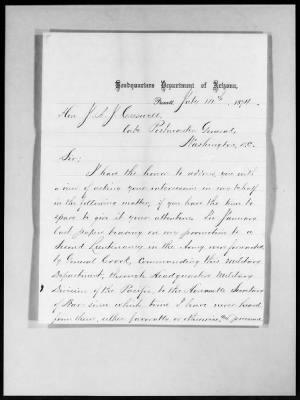 Headquarters Department of Arizona,
Prescott July 1874.
Hon J. A. J. Creswell,
Postmaster General,
Washington, D.C.
Sir:
I have the honor to address you with
a view of asking your intercession in my behalf
in the following matter, if you have the time to
spare to give it your attention. In January
last papers bearing on my promotion to a
Second Lieutenancy in the Army were forwarded
by General Crook, Commanding this Military
Department, through Headquarters Military
Division of the Pacific, to the Honorable Secretary
of War since which time I have never heard
from them, either favorably or otherwise, and presume